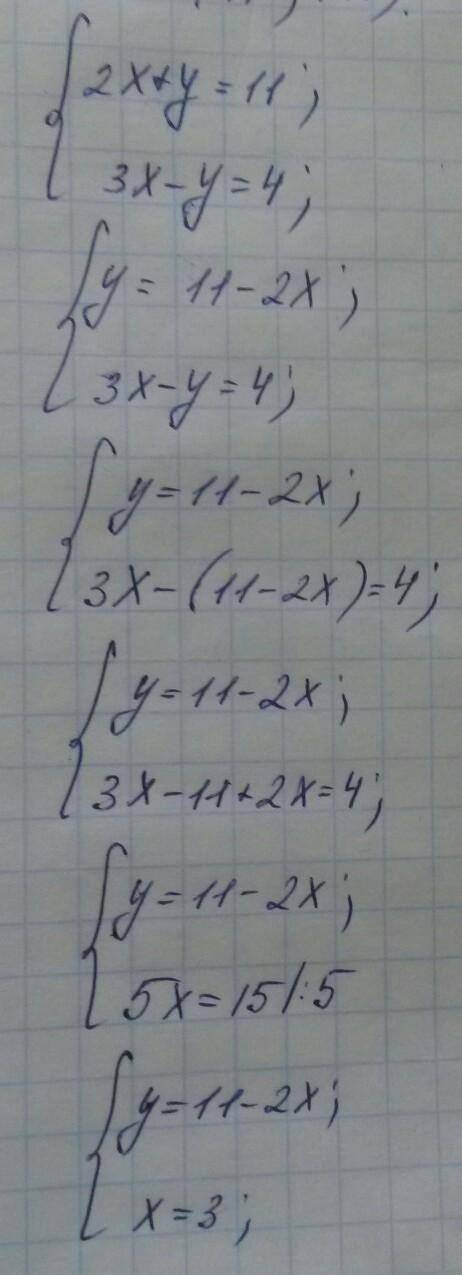 2x+y=11;
3x-y=4;
y= 11-2x;
3x-y=4;
y=11-2x;
3x-(11-2x)=4;
y=11-2x;
3x-11+2x=4;
y=11-2x;
5x=15/:5
y=11-2x;
x=3;